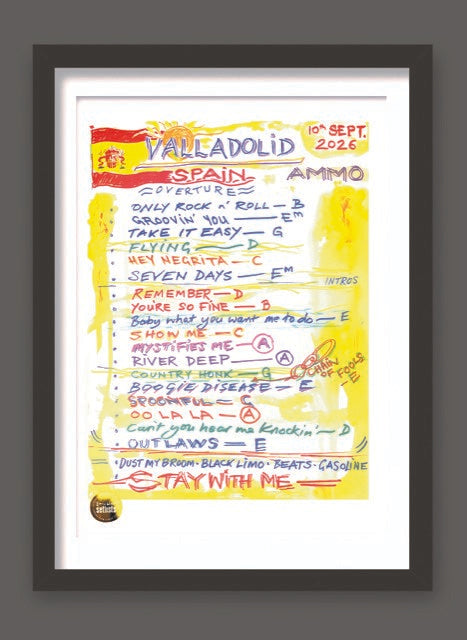 VALLADOLID
10TH SEPT.
2026
SPAIN
AMMO
OVERTURE
ONLY ROCK n' ROLL — B
GROOVIN' YOU — Em
TAKE IT EASY — G
FLYING — D
HEY NEGRITA — C
SEVEN DAYS — Em
INTROS
REMEMBER — D
YOU'RE SO FINE — B
Baby what you want me to do — E
SHOW ME — C
MYSTIFIES ME — A
RIVER DEEP — A
COUNTRY HONK — G
CHAIN
OF FOOLS
— E
BOOGIE DISEASE — E
SPOONFUL — C
OO LA LA — A
Can't you hear me Knockin' — D
OUTLAWS — E
DUST MY BROOM · BLACK LIMO · BEATS · GASOLINE
STAY WITH ME —
setlists